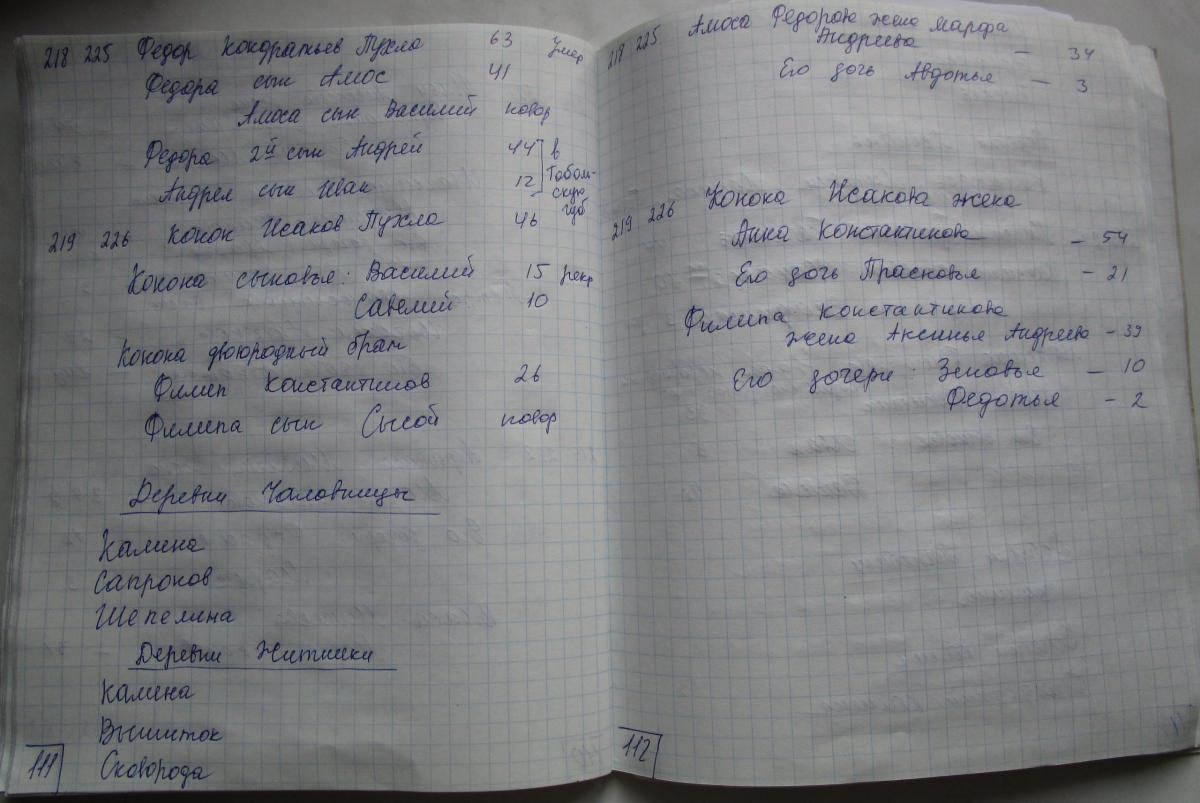 218 225 Федор Кондратьев Пухло 63 Умер
Федора сын Амос 41
Амоса сын Василий новор
Федора 2й сын Андрей 44 в
Андрея сын Иван 12 Тоболь-
скую
губ
219 226 Конон Исаков Пухло 46
Конона сыновья: Василий 15 рекр
Савелий 10
Конона двоюродный брат
Филип Константинов 26
Филипа сын Сысой новор
Деревни Чаловницы
Калина
Сапронов
Шепелина
Деревни Житники
Калина
Вышиток
Сковорода
111
218 225 Амоса Федорова жена Марфа
Андреева — 34
Его дочь Авдотья — 3
219 226 Конона Исакова жена
Анна Константинова - 54
Его дочь Прасковья - 21
Филипа Константинова
жена Аксинья Андреева - 39
Его дочери: Зиновья - 10
Федотья - 2
112